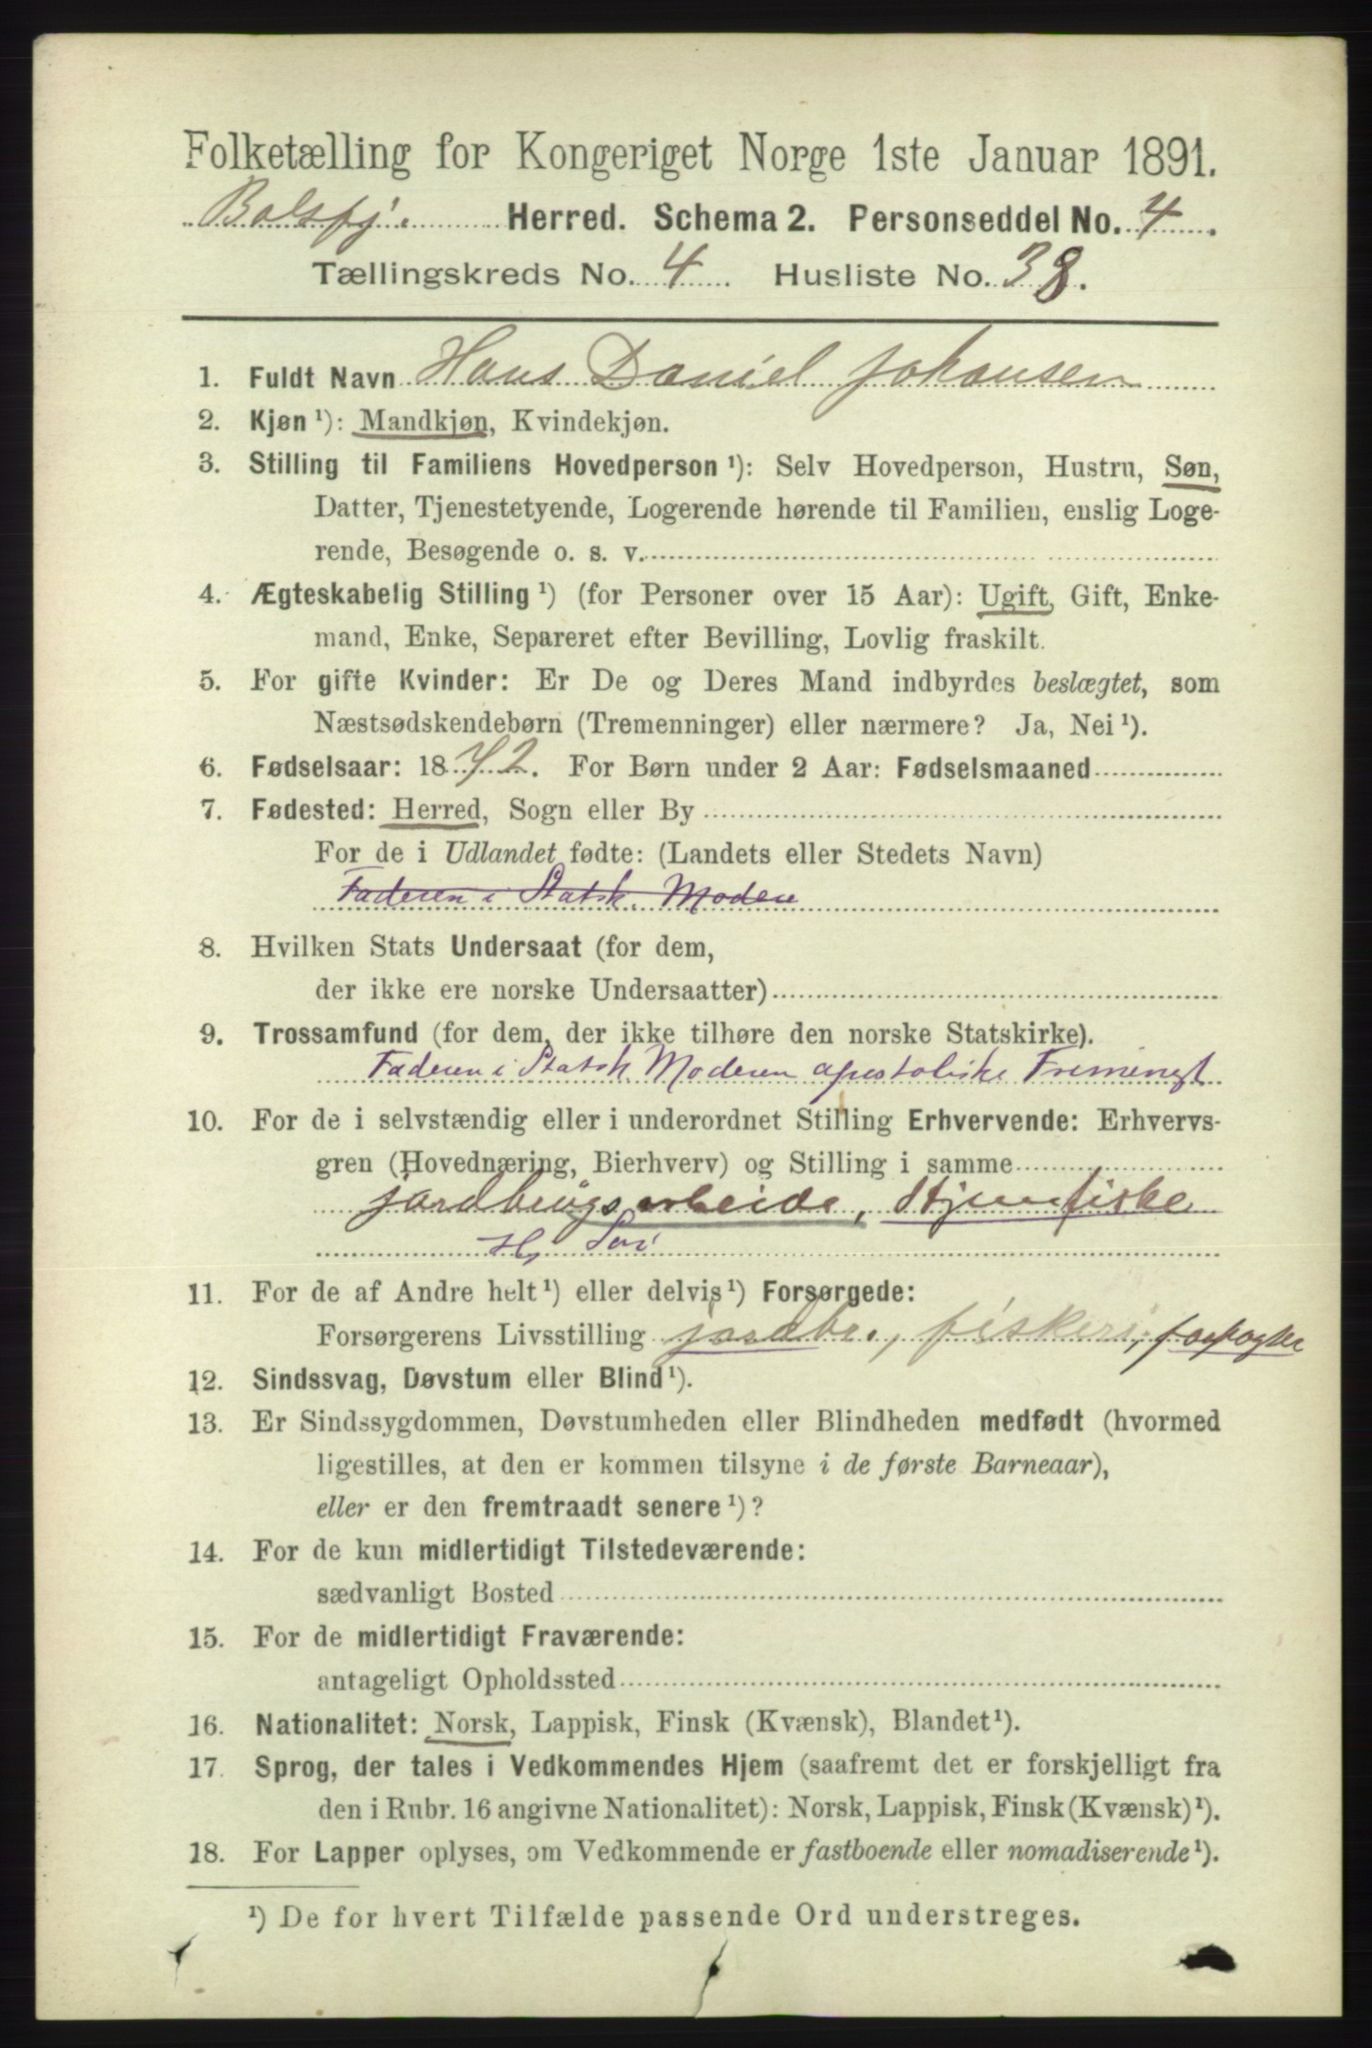 Folketælling for Kongeriget Norge 1ste Januar 1891.
Balsfj. Herred. Schema 2. Personseddel No. 4.
Tællingskreds No. 4. Husliste No. 38.
1. Fuldt Navn Hans Daniel Johansen
2. Kjøn ¹): Mandkjøn, Kvindekjøn.
3. Stilling til Familiens Hovedperson ¹): Selv Hovedperson, Hustru, Søn,
Datter, Tjenestetyende, Logerende hørende til Familien, enslig Loge-
rende, Besøgende o. s. v.
4. Ægteskabelig Stilling ¹) (for Personer over 15 Aar): Ugift, Gift, Enke-
mand, Enke, Separeret efter Bevilling, Lovlig fraskilt.
5. For gifte Kvinder: Er De og Deres Mand indbyrdes beslægtet, som
Næstsødskendebørn (Tremenninger) eller nærmere? Ja, Nei ¹).
6. Fødselsaar: 1872. For Børn under 2 Aar: Fødselsmaaned
7. Fødested: Herred, Sogn eller By
For de i Udlandet fødte: (Landets eller Stedets Navn)
Faderen i Statsk. Modere
8. Hvilken Stats Undersaat (for dem,
der ikke ere norske Undersaatter)
9. Trossamfund (for dem, der ikke tilhøre den norske Statskirke).
Faderen i Statsk Moderen apostoliske Frimenigt
10. For de i selvstændig eller i underordnet Stilling Erhvervende: Erhvervs-
gren (Hovednæring, Bierhverv) og Stilling i samme
jordbrugsarbeide, Hjemfiske
11. For de af Andre helt ¹) eller delvis ¹) Forsørgede:
Forsørgerens Livsstilling jordbr., fiskeri,
12. Sindssvag, Døvstum eller Blind ¹).
13. Er Sindssygdommen, Døvstumheden eller Blindheden medfødt (hvormed
ligestilles, at den er kommen tilsyne i de første Barneaar),
eller er den fremtraadt senere ¹)?
14. For de kun midlertidigt Tilstedeværende:
sædvanligt Bosted
15. For de midlertidigt Fraværende:
antageligt Opholdssted
16. Nationalitet: Norsk, Lappisk, Finsk (Kvænsk), Blandet ¹).
17. Sprog, der tales i Vedkommendes Hjem (saafremt det er forskjelligt fra
den i Rubr. 16 angivne Nationalitet): Norsk, Lappisk, Finsk (Kvænsk) ¹).
18. For Lapper oplyses, om Vedkommende er fastboende eller nomadiserende ¹).
¹) De for hvert Tilfælde passende Ord understreges.